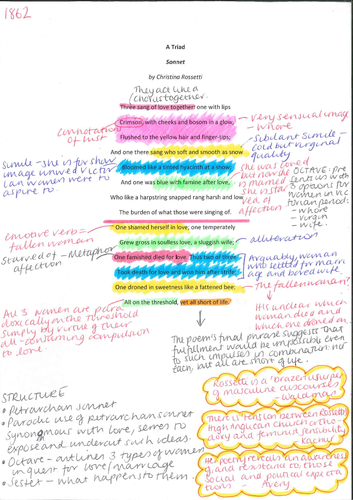 1862
A Triad
Sonnet
by Christina Rossetti
They act like a
chorus together.
Three sang of love together: one with lips
Crimson, with cheeks and bosom in a glow,
Flushed to the yellow hair and finger-tips;
And one there sang who soft and smooth as snow
Bloomed like a tinted hyacinth at a show;
And one was blue with famine after love,
Who like a harpstring snapped rang harsh and low
The burden of what those were singing of.
One shamed herself in love; one temperately
Grew gross in soulless love, a sluggish wife;
One famished died for love. Thus two of three
Took death for love and won him after strife;
One droned in sweetness like a fattened bee:
All on the threshold, yet all short of life.
connotation
of lust
very sensual image
- whore
Sibilant simile -
cold but virginal
quality
Simile - she is for show
image unwed Victor
ian women were to
aspire to.
she was loved
but now she
is married
she is star
ved of
affection
OCTAVE: pre
sents us with
3 options for
women in vic
torian period:
- whore
- virgin
- wife.
emotive verb -
fallen woman
Starved of - Metaphor
affection
alliteration
Arguably, woman
who settled for marri
age and bored wife.
The fallen woman?
All 3 women are para
doxically on the threshold
simply by virtue of their
all-consuming compulsion
to love.
It is unclear which
woman died and
which one droned on.
The poem's final phrase suggests that
fulfillment would be impossible even
to such impulses in combination: not
each, but all are short of life.
STRUCTURE
• Petrarchan sonnet
• Parodic use of petrarchan sonnet
synonymous with love, serves to
expose and undercut such ideas.
• Octave - outlines 3 types of women
in quest for love/marriage
• Sestet - what happens to them.
Rossetti is a "brazen usurper
of masculine discourses"
- Waldman
There is tension between Rossetti's
High Anglican church orthod
oxy and feminist sensibility
Her poem reveals an awareness
of and resistance to those
social and political expecta
tions - Avery